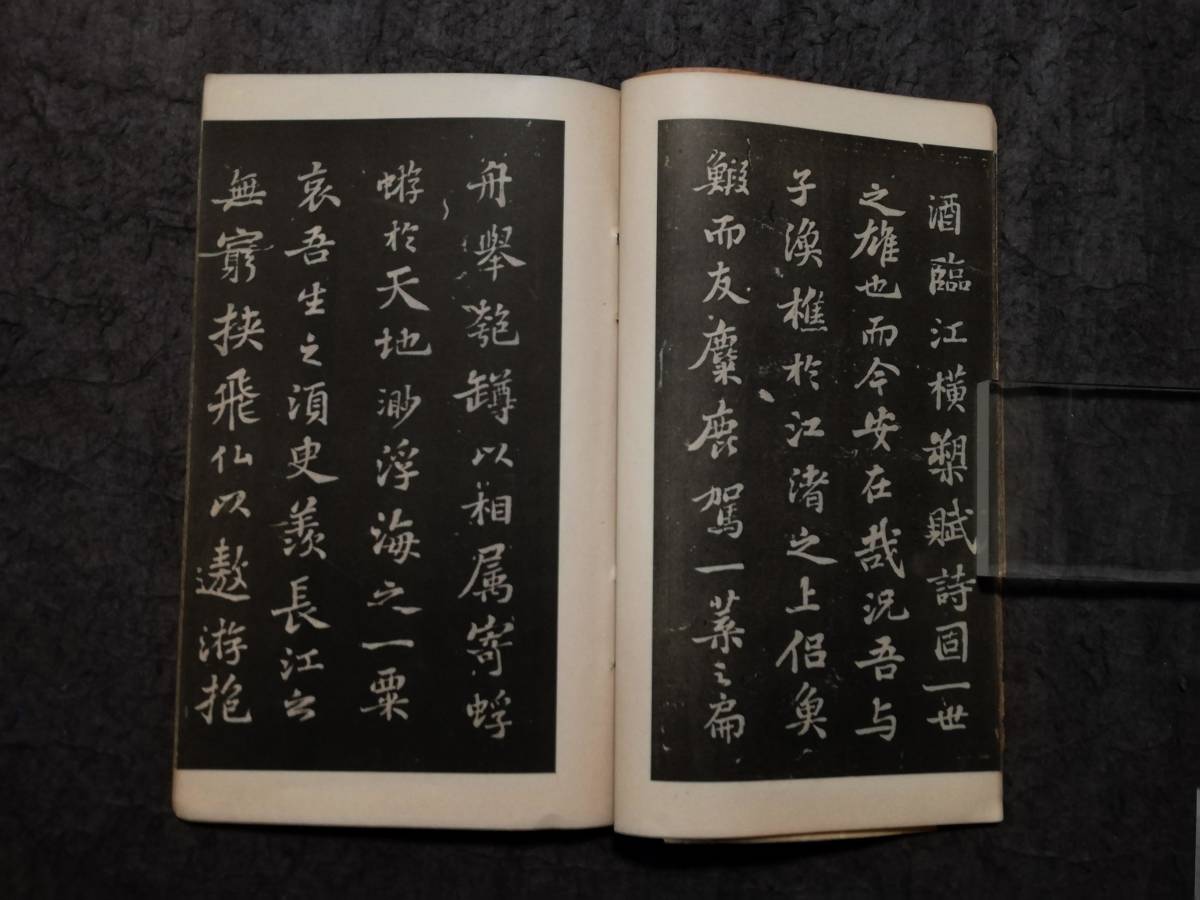 酒臨江橫槊賦詩固一世
之雄也而今安在哉況吾与
子漁樵於江渚之上侶魚
鰕而友麋鹿駕一葉之扁
舟舉匏罇以相属寄蜉
蝣於天地渺浮海之一粟
哀吾生之須臾羨長江之
無窮挾飛仙以遨游抱